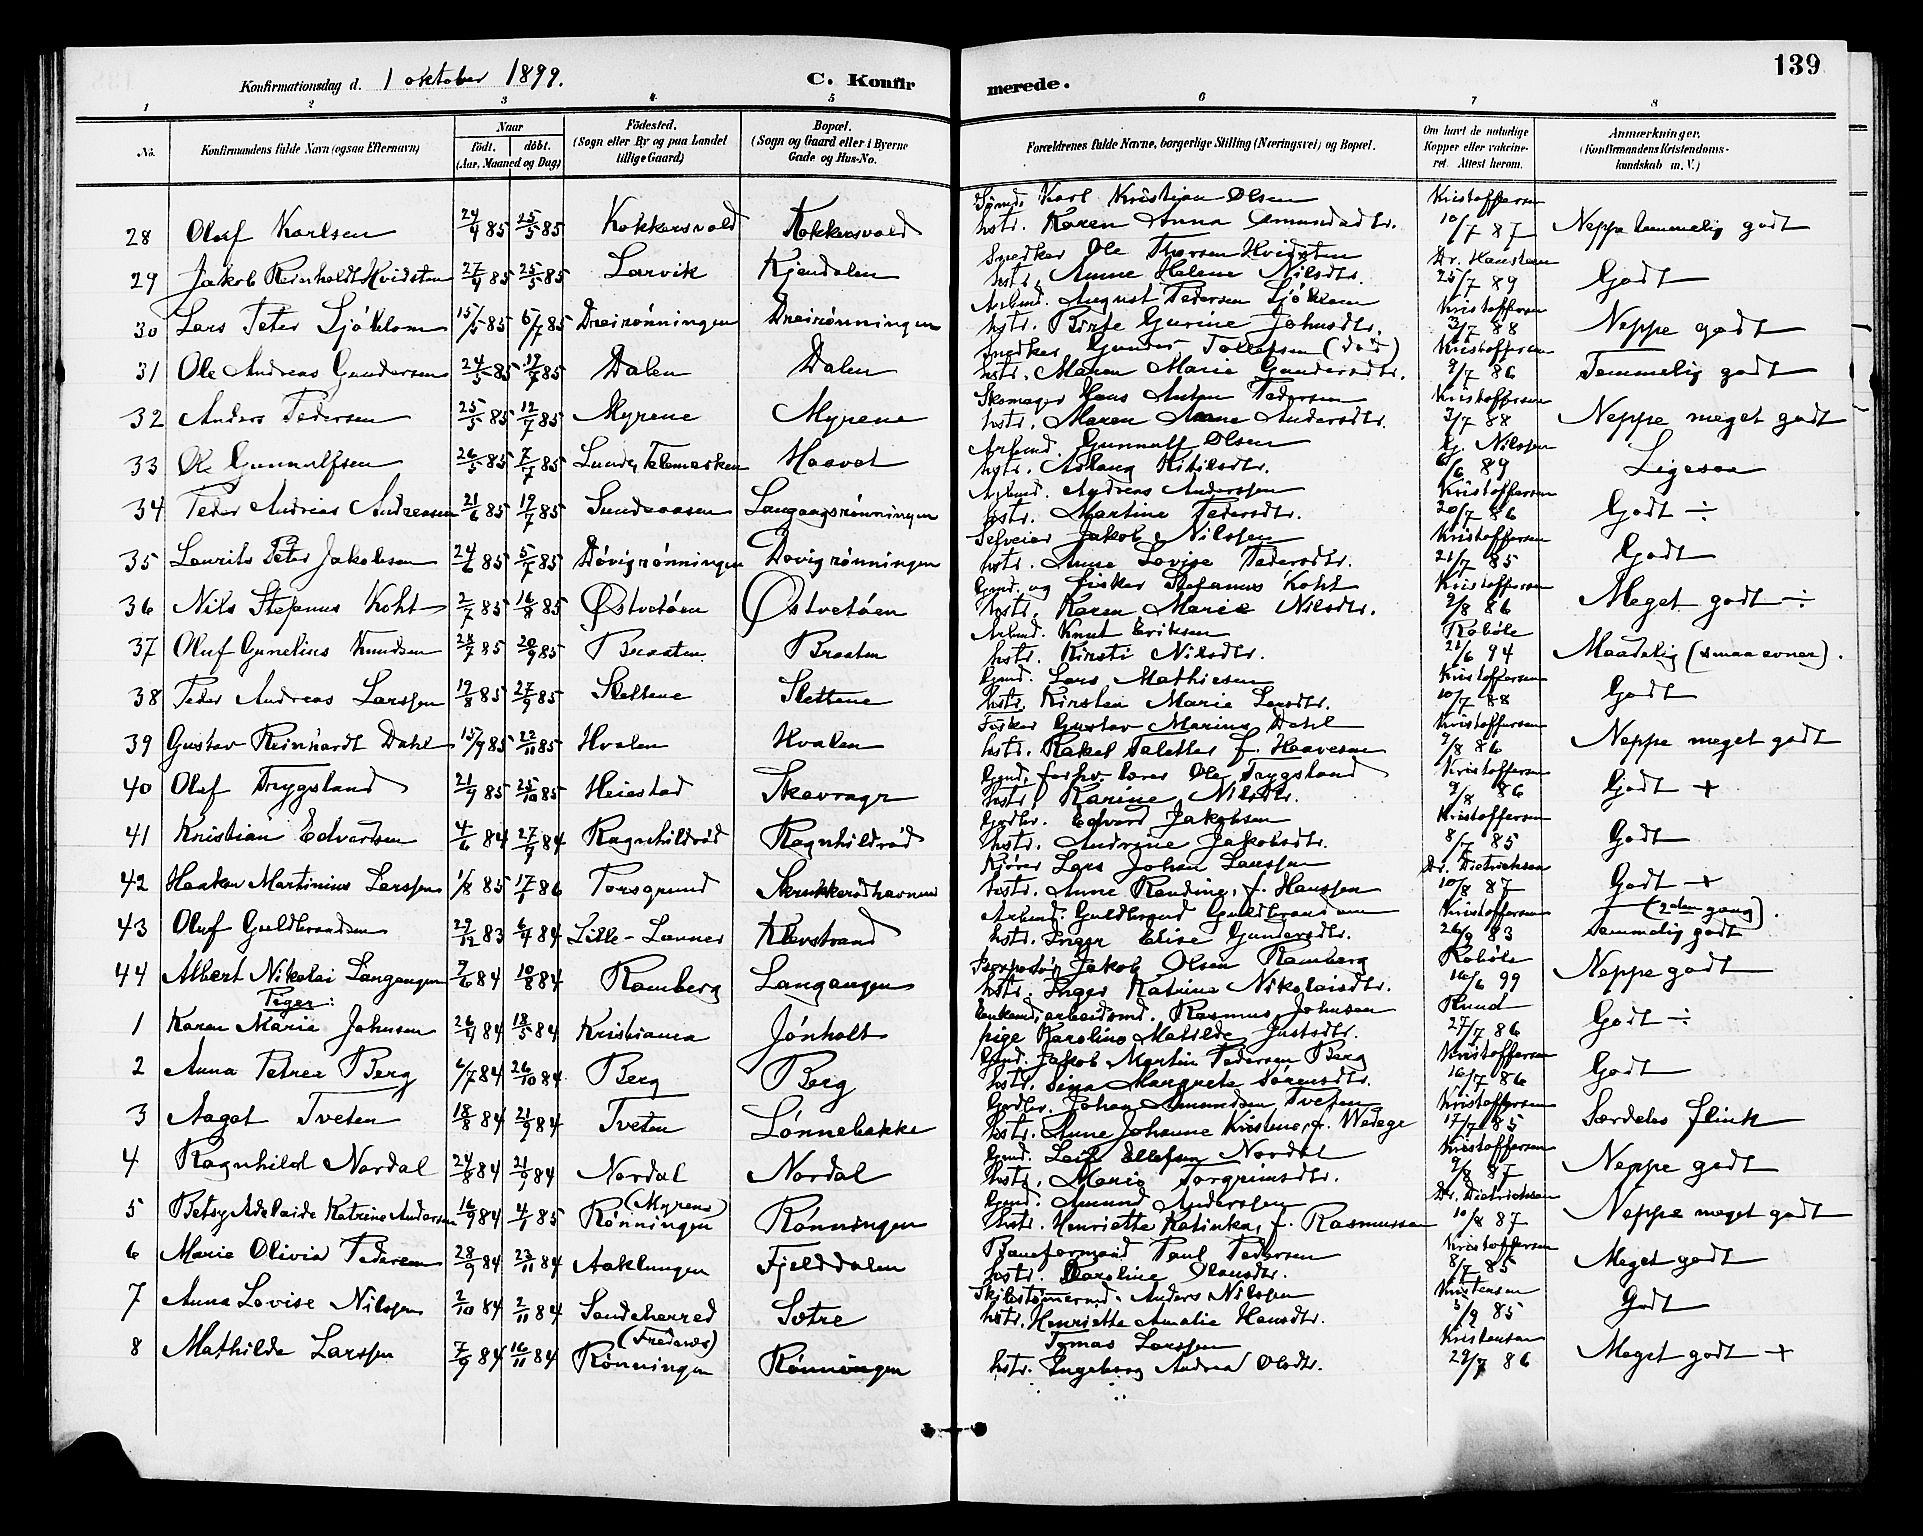 139
Konfirmationsdag d. 1 oktober 1899. C. Konfir merede.
1 2 3 4 5 6 7 8
No. Konfirmandens fulde Navn (ogsaa Efternavn) Naar født. døbt. (Aar, Maaned og Dag) Fødested. (Sogn eller By og paa Landet tillige Gaard) Bopæl. (Sogn og Gaard eller i Byerne Gade og Hus-No. Forældrenes fulde Navne, borgerlige Stilling (Næringsvei) og Bopæl. Om havt de naturlige Kopper eller vakcineret. Attest herom. Anmærkninger. (Konfirmandens Kristendomskundskab m. V.)
28 Oluf Karlsen 24/4 85 25/5 85 Kokkersvold Kokkersvold Karl Kristian Olsen hstr. Karen Anna Amundsdtr. Kristoffersen 10/7 87 Neppe temmelig godt
29 Jakob Reinholdt Hvidsten 27/4 85 25/5 85 Larvik Kjendalen Snedker Ole Thorsen Hvidsten hstr. Anne Helene Nilsdtr. Dr. 25/7 89 Godt
30 Lars Peter Sjøblom 15/5 85 5/7 85 Dreirønningen Dreirønningen Arbmd. August Pedersen Sjøblom hstr. Birte Gurine Johnsdtr. Kristoffersen 3/7 88 Neppe godt
31 Ole Andreas Gundersen 24/5 85 12/7 85 Dalen Dalen Snedker Gunder Tollefsen (død) hstr. Maren Marie Gundersdtr. Kristoffersen 9/7 86 Temmelig godt
32 Anders Pedersen 25/5 85 12/7 85 Myrene Myrene Skomager Hans Anton Pedersen hstr. Maren Anne Andersdtr. Kristoffersen 3/7 88 Neppe meget godt
33 Ole Gunnulfsen 26/5 85 7/7 85 Lunde, Telemarken Haavet Arbmd. Gunnulf Olsen hstr. Aslaug Kitilsdtr. Nilssen 6/6 89 Ligesaa
34 Peder Andreas Andreassen 21/6 85 19/7 85 Sundsaasen Langangsrønningen Arbmd. Andreas Anderssen hstr. Martine Pedersdtr. Kristoffersen 20/7 86 Godt ÷
35 Laurits Peter Jakobsen 24/6 85 5/7 85 Døvigrønningen Døvigrønningen Selveier Jakob Nilssen hstr. Anne Lovise Pedersdtr. Kristoffersen 21/7 85 Godt
36 Nils Stefanus Koht 2/7 85 16/8 85 Østvetøen Østvetøen Gmd. og fisker Stefanus Koht hstr. Karen Marie Nilsdtr. Kristoffersen 9/8 86 Meget godt ÷
37 Oluf Gunelius Knudsen 28/7 85 20/9 85 Braaten Braaten Arbmd. Knut Eriksen hstr. Kirsti Nilsdtr. Robøle 21/6 94 Maadelig (smaa evner).
38 Peder Andreas Larssen 19/8 85 27/9 85 Slettene Slettene Gmd. Lars Mathiesen hstr. Kirsten Marie Larsdtr. Kristoffersen 10/7 88 Godt
39 Gustav Reinhardt Dahl 15/9 85 22/11 85 Hvalen Hvalen Fisker Gustav Marius Dahl hstr. Rakel Talette f. Haavesen Kristoffersen 9/8 86 Neppe meget godt
40 Olaf Trygsland 21/9 85 25/10 85 Heiestad Skavrager Gmd. forhv. lærer Ole Trygsland hstr. Karine Nilsdtr. Kristoffersen 9/8 86 Godt +
41 Kristian Edvardsen 4/6 84 27/9 84 Ragnhildrød Ragnhildrød Gødbr. Edvard Jakobsen hstr. Andrine Jakobsdtr. Kristoffersen 8/7 85 Godt
42 Haakon Martinius Larssen 1/8 85 17/1 86 Porsgrund Skrukkerødhavnen Kjører Lars Johan Larssen hstr. Anne Randine, f. Hanssen Dr. Dietrichson 10/8 87 Godt +
43 Oluf Guldbrandsen 29/12 83 6/4 84 Lille-Lanner Klevstrand Arbmd. Guldbrand Guldbrandsen hstr. Inger Elise Gundersdtr. Kristoffersen 26/9 83 (2den gang). temmelig godt
44 Albert Nikolai Langangen 9/6 84 10/8 84 Ramberg Langangen Jakob Olsen Ramberg hstr. Inger Katrine Nikolaisdtr. Robøle 16/6 99 Neppe godt
Piger:
1 Karen Marie Johnsen 26/4 84 18/5 84 Kristiania Jønholt Enkemd. arbeidsmd. Rasmus Johnsen pige Karoline Matilde Justsdtr. Ruud 27/7 86 Godt ÷
2 Anna Petrea Berg 6/7 84 26/10 84 Berg Berg Gmd. Jakob Martin Pedersen Berg hstr. Sina Margrete Sørensdtr. Kristoffersen 16/7 86 Godt
3 Aaget Tveten 18/8 84 21/9 84 Tveten Lønnebakke Gødbr. Johan Amundsen Tveten hstr. Anne Johanne Kristine, f. Wedege Kristoffersen 17/7 85 Særdeles flink
4 Ragnhild Nordal 24/8 84 21/9 84 Nordal Nordal Gmd. Leif Ellefsen Nordal hstr. Marie Torgrimsdtr. Kristoffersen 9/8 87 Neppe godt
5 Betsy Adelaide Katrine Andersen 16/9 84 4/1 85 (Myrene) Rønningen Rønningen Gmd. Amund Anderssen hstr. Henriette Katinka, f. Rasmussen Dr. Dietrichson 10/8 87 Neppe meget godt
6 Marie Olivia Pedersen 28/9 84 23/11 84 Aaklungen Fjelddalen Baneformand Paul Pedersen hstr. Karoline Olausdtr. Kristoffersen 8/7 85 Meget godt
7 Anna Lovise Nilssen 2/10 84 2/11 84 Sandeherred Sætre Skibstømmermd. Anders Nilssen hstr. Henriette Amalie Hansdtr. Kristensen 3/9 85 Godt
8 Mathilde Larssen 7/9 84 16/11 84 Rønningen Rønningen Tomas Larssen hstr. Ingeborg Andrea Olsdtr. Kristensen 29/7 86 Meget godt +